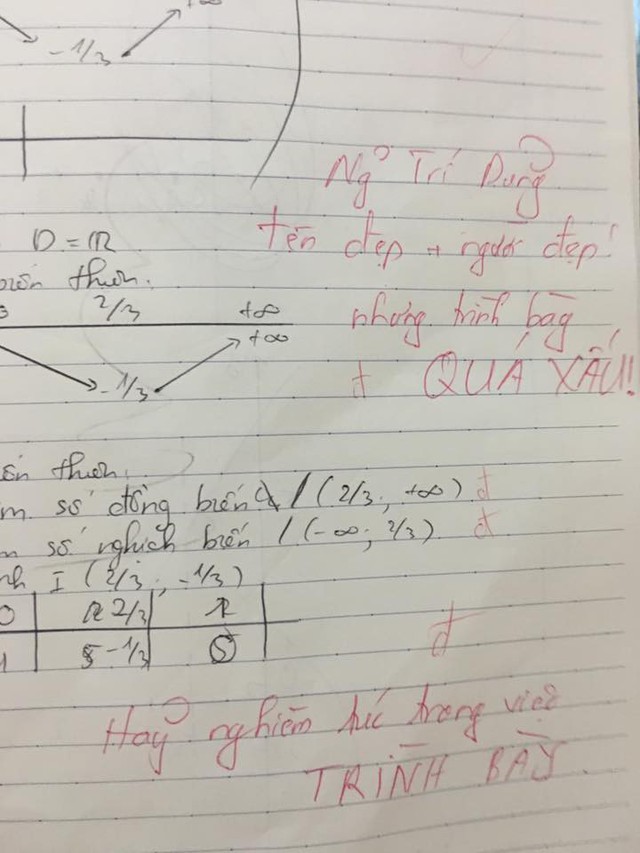 +∞
- 1/3
Ngô Trí Dũng
tên đẹp + người đẹp!
nhưng trình bày
đ QUÁ XẤU!
D = ℝ
biến thiên.
2/3 +∞
+∞
- 1/3
biến thiên.
số đồng biến / (2/3; +∞) đ
số nghịch biến / (-∞; 2/3) đ
I (2/3; -1/3)
0 2/3 1
-1/3
đ
Hãy nghiêm túc trong việc
TRÌNH BÀY